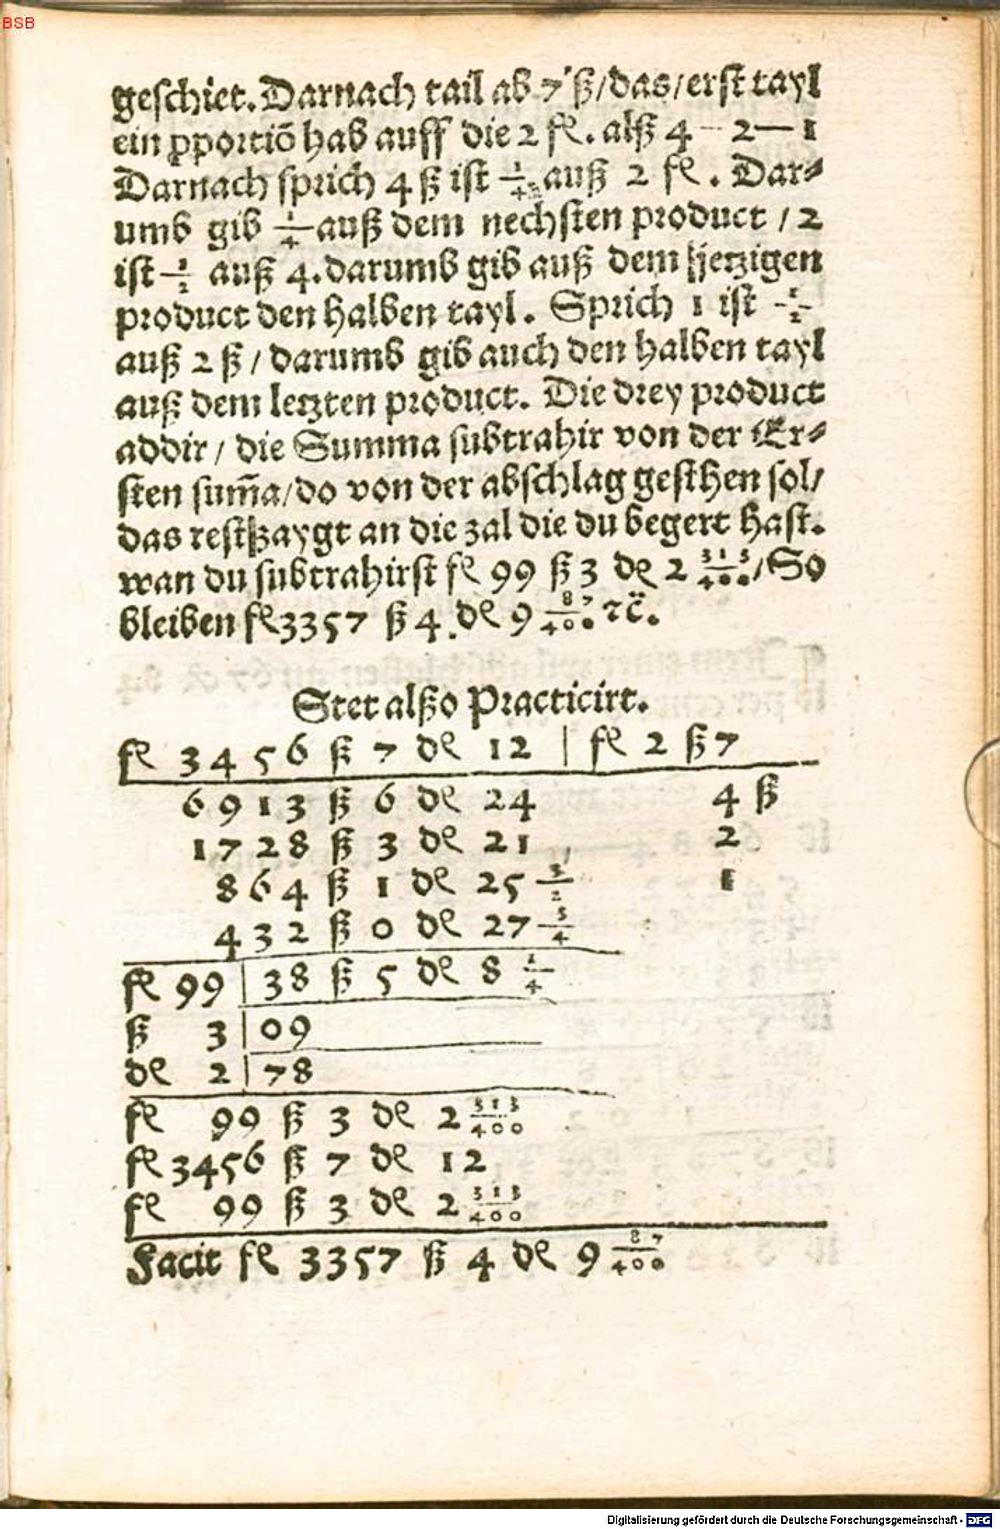 BSB
geschiet. Darnach tail ab 7 ß/das/erst tayl
ein ꝓportiõ hab auff die 2 fl. alß 4 — 2 — 1
Darnach sprich 4 ß ist 1/4 auß 2 fl. Dar⸗
umb gib 1/4 auß dem nechsten product / 2
ist 1/2 auß 4. darumb gib auß dem jetzigen
product den halben tayl. Sprich 1 ist 1/2
auß 2 ß / darumb gib auch den halben tayl
auß dem letzten product. Die drey product
addir / die Summa subtrahir von der Er⸗
sten sum̃a/do von der abschlag gesthen sol/
das rest tzaygt an die zal die du begert hast.
wan du subtrahirst fl 99 ß 3 dl 2 313/400./So
bleiben fl 3357 ß 4. dl 9 87/400. ⁊c̈.
Stet alßo Practicirt.
fl 3456 ß 7 dl 12 | fl 2 ß 7
6913 ß 6 dl 24 4 ß
1728 ß 3 dl 21 2
864 ß 1 dl 25 1/2 1
432 ß 0 dl 27 3/4
fl 99 | 38 ß 5 dl 8 1/4
ß 3 | 09
dl 2 | 78
fl 99 ß 3 dl 2 313/400
fl 3456 ß 7 dl 12
fl 99 ß 3 dl 2 313/400
Facit fl 3357 ß 4 dl 9 87/400
Digitalisierung gefördert durch die Deutsche Forschungsgemeinschaft - DFG